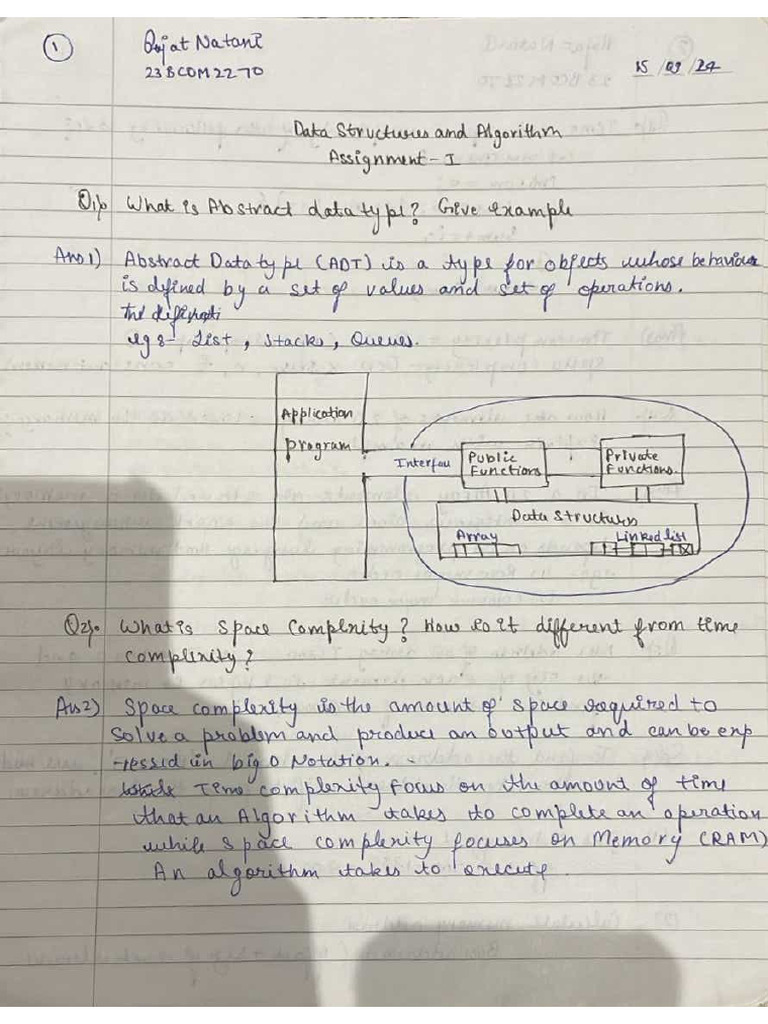 1
Rajat Natani
23BCOM2270
15/09/24
Data Structures and Algorithm
Assignment - I
Q1) What is Abstract datatype? Give example
Ans1) Abstract Datatype (ADT) is a type for objects whose behaviour
is defined by a set of values and set of operations.
eg:- List, Stacks, Queues.
Application
program
Interface
Public
Functions
Private
Functions.
Data Structures
Array
Linked list
Q2). What is space Complexity? How is it different from time
complexity?
Ans2) Space complexity is the amount of space required to
solve a problem and produce an output and can be exp
-ressed in big O Notation.
Time complexity Focus on the amount of time
that an Algorithm takes to complete an operation
while space complexity focuses on Memory (RAM)
An algorithm takes to execute.